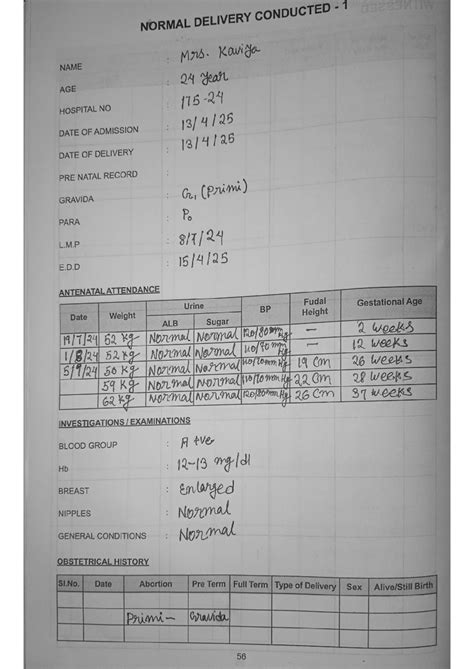 WITNESSED
NORMAL DELIVERY CONDUCTED - 1
NAME : Mrs. Kaviya
AGE : 24 Year
HOSPITAL NO : 175-24
DATE OF ADMISSION : 13/4/25
DATE OF DELIVERY : 13/4/25
PRE NATAL RECORD :
GRAVIDA : G1 (Primi)
PARA : P0
L.M.P : 8/7/24
E.D.D : 15/4/25
ANTENATAL ATTENDANCE
Date Weight Urine ALB Sugar BP Fudal Height Gestational Age
19/7/24 52 kg Normal Normal 120/80mmHg — 2 weeks
1/8/24 52 kg Normal Normal 110/70 mmHg — 12 weeks
5/9/24 56 kg Normal Normal 110/70mmHg 19 Cm 26 weeks
59 kg Normal Normal 110/70mmHg 22 Cm 28 weeks
62 kg Normal Normal 120/80mmHg 26 Cm 37 weeks
INVESTIGATIONS / EXAMINATIONS
BLOOD GROUP : A +ve
Hb : 12-13 mg/dl
BREAST : Enlarged
NIPPLES : Normal
GENERAL CONDITIONS : Normal
OBSTETRICAL HISTORY
Sl.No. Date Abortion Pre Term Full Term Type of Delivery Sex Alive/Still Birth
Primi - Gravida
56